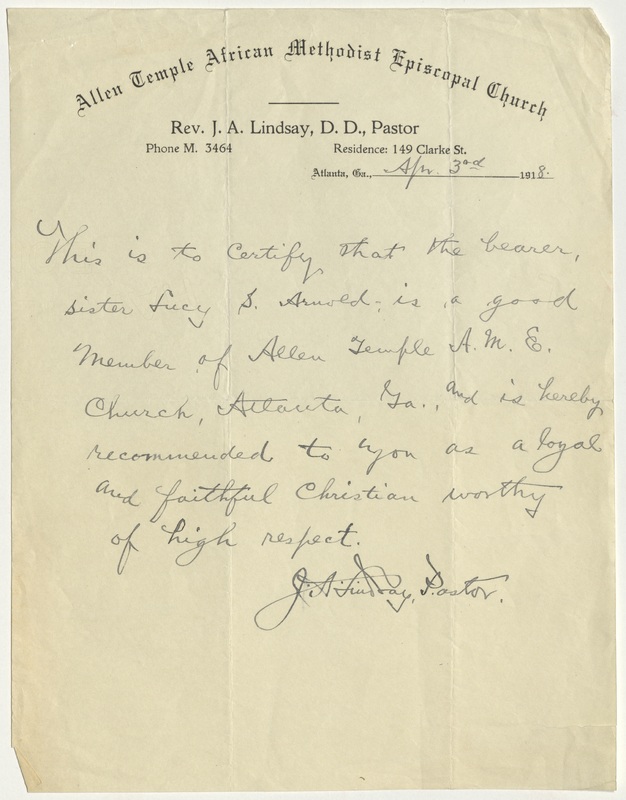 Allen Temple African Methodist Episcopal Church
Rev. J. A. Lindsay, D. D., Pastor
Phone M. 3464 Residence: 149 Clarke St.
Atlanta, Ga., Apr. 3rd 1918.
This is to certify that the bearer,
sister Lucy S. Arnold, is a good
Member of Allen Temple A. M. E.
Church, Atlanta, Ga., and is hereby
recommended to you as a loyal
and faithful Christian worthy
of high respect.
J. A. Lindsay, Pastor.